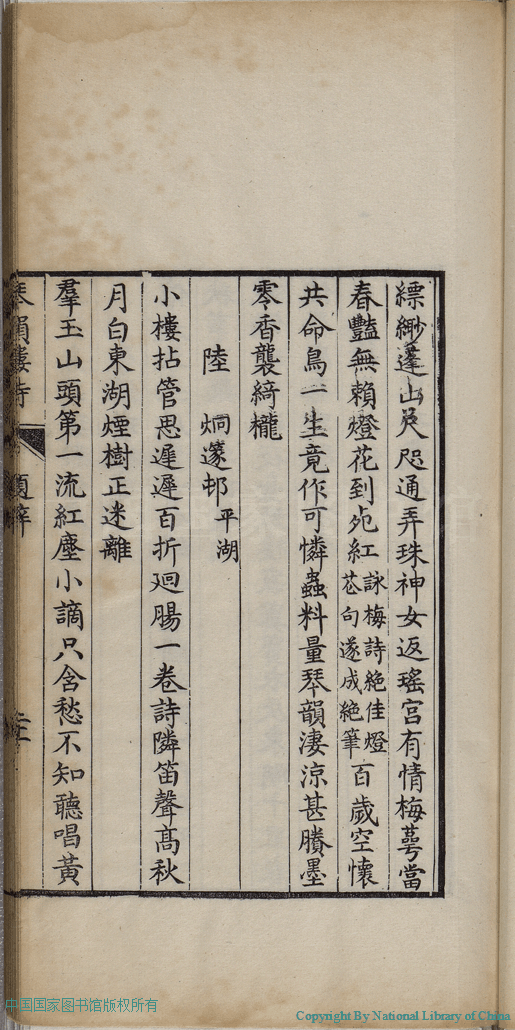 縹緲蓬山咫尺通弄珠神女返瑤宫有情梅萼當
春豔無賴燈花到死紅詠梅詩絶佳燈花句遂成絶筆百歲空懷
共命鳥一生竟作可憐蟲料量琴韻淒涼甚賸墨
零香襲綺櫳
陸烱邃邨平湖
小樓拈管思遲遲百折廻腸一卷詩隣笛聲髙秋
月白東湖煙樹正迷離
羣玉山頭第一流紅塵小謫只含愁不知聽唱黃
琴韻樓詩 題辭
中国国家图书馆版权所有
Copyright By National Library of China